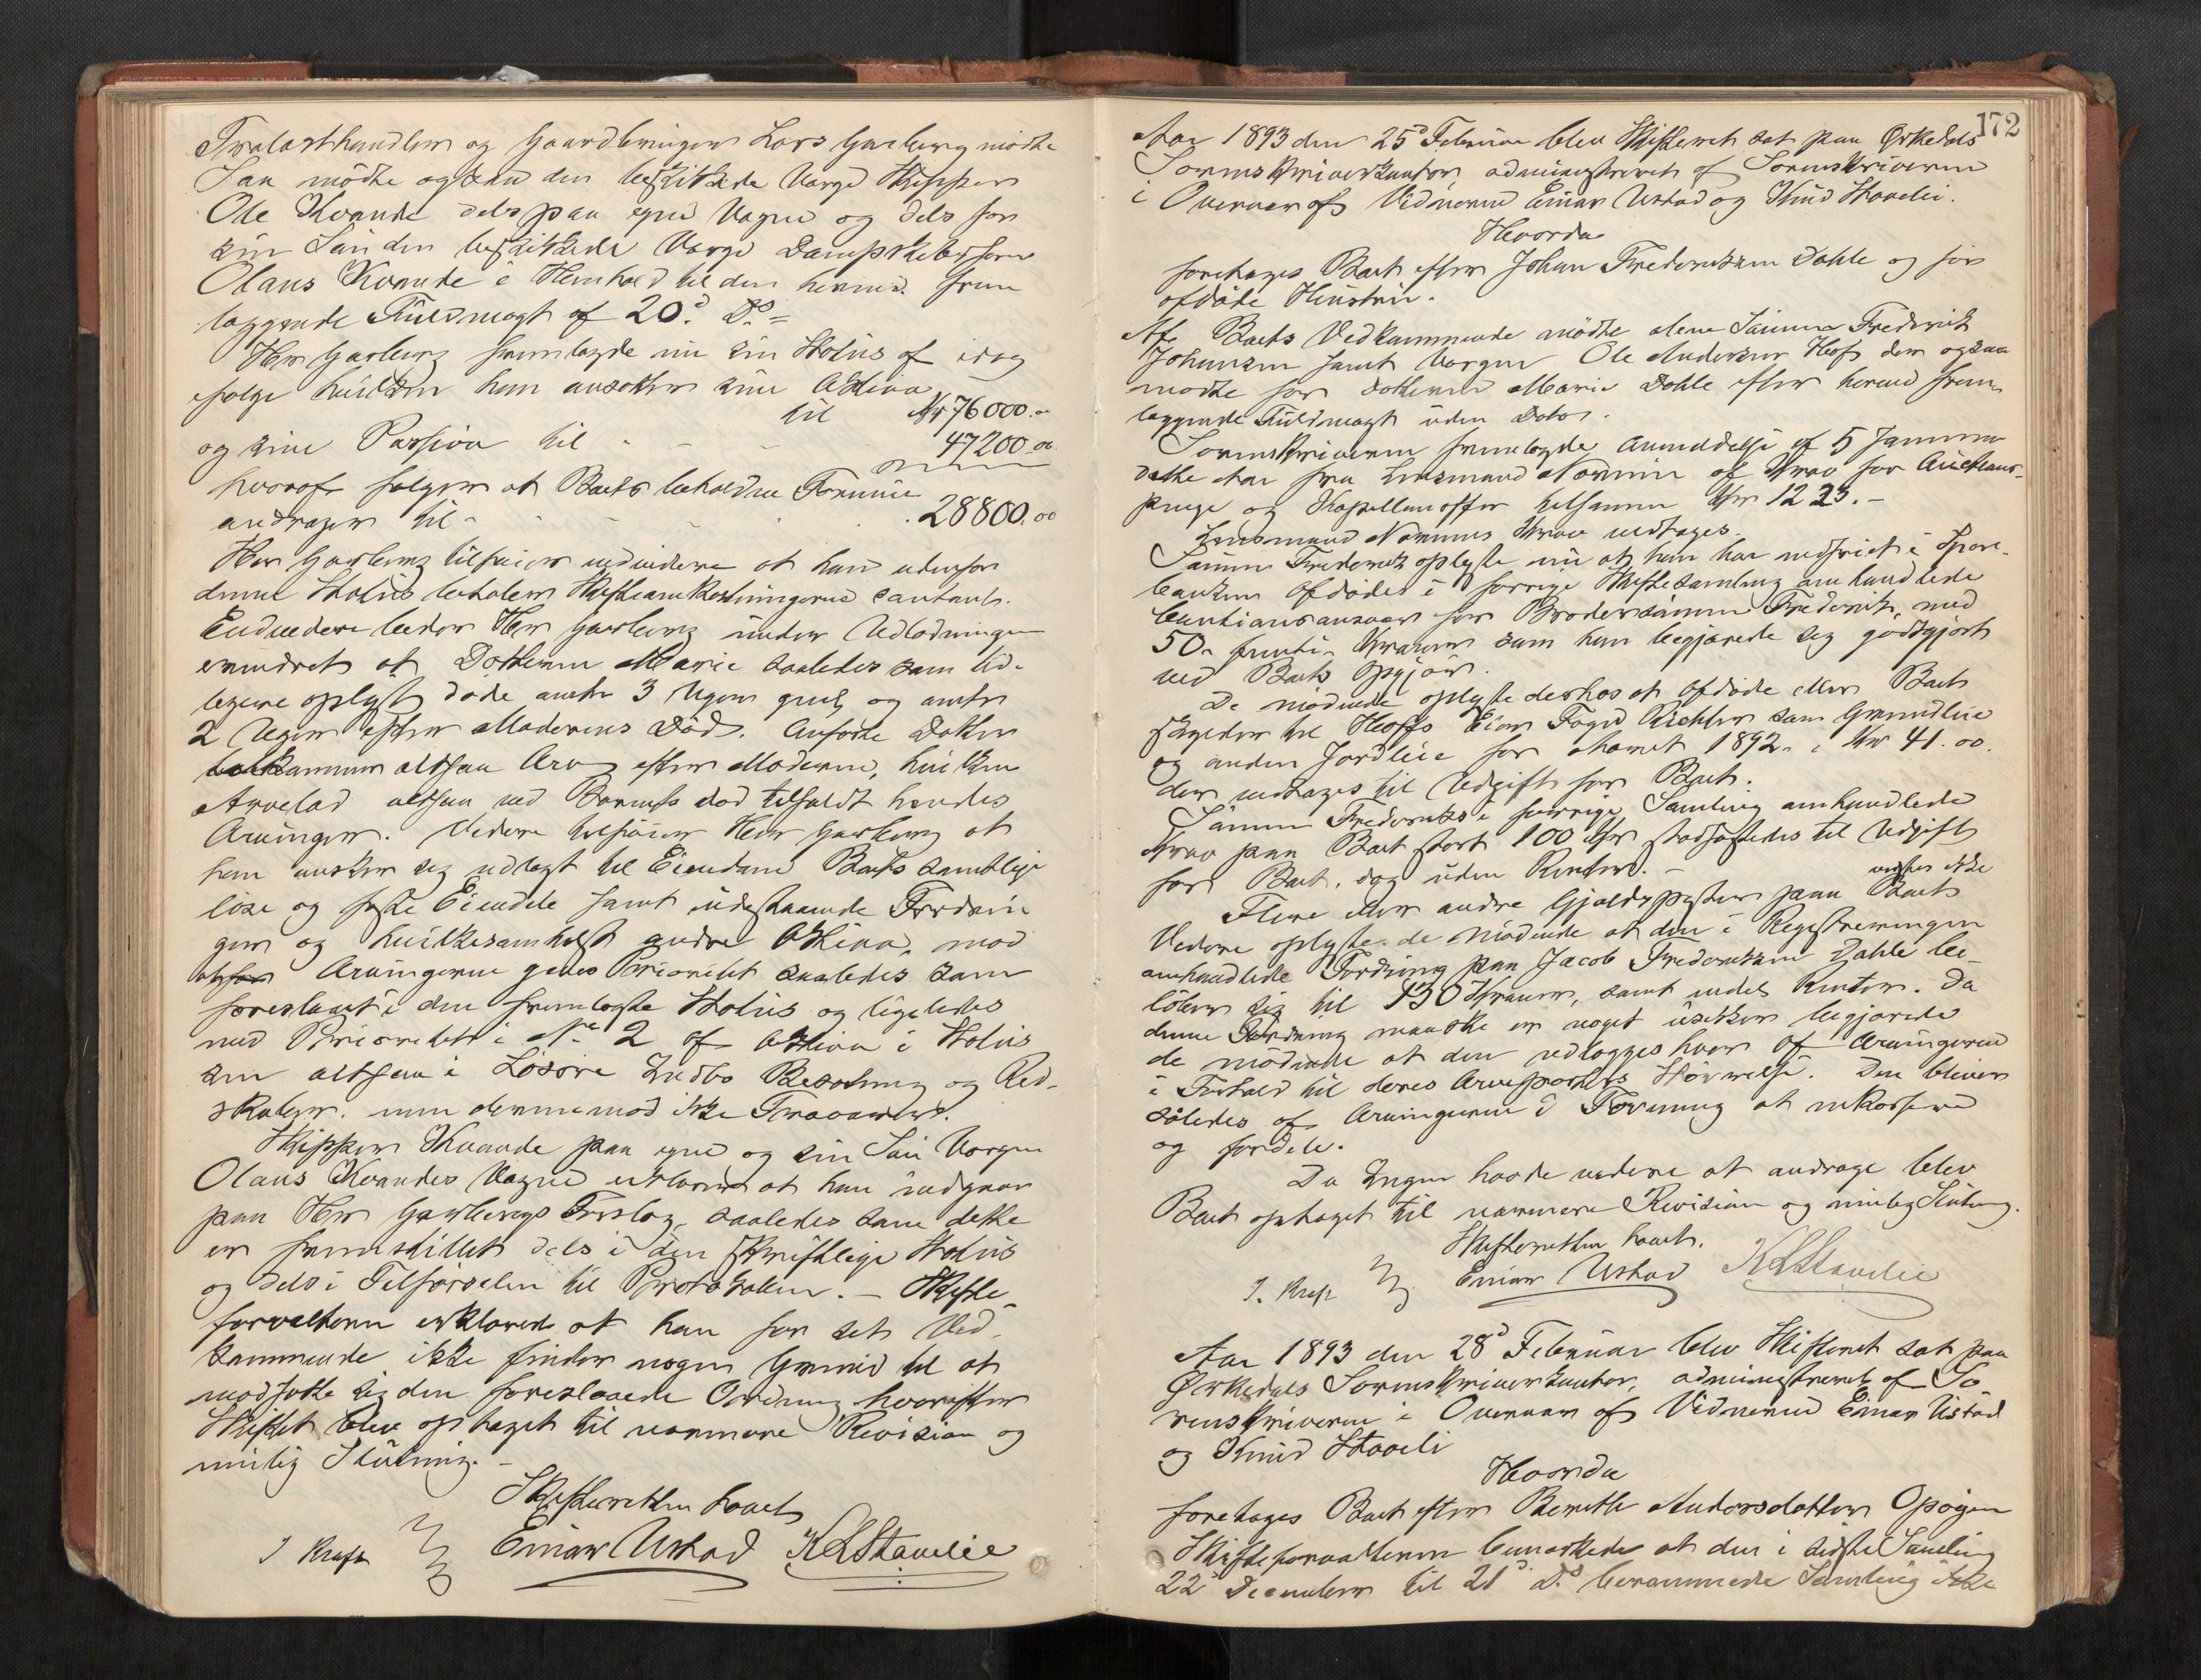 Trælasthandler og Gaardbruger Lars Garberg mødte
Saa mødte ogsaa den beskikkede Værge Skipper
Ole Kvande dels paa egne Vegne og dels for
sin Søn den beskikkede Værge Dampskibsfører
Olaus Kvande i Henhold til den herved frem
læggende Fuldmagt af 20d Ds=
Herr Garberg fremlagde nu sin Status af idag
ifølge hvilken han ansætter sine Aktiva
til Kr 76000.00
og sine Passiva til - - - 47200.00
hvoraf følger at Boets beholdne Formue
andrager til - - - - 28800.00
Herr Garberg tilføier endvidere at han udenfor
denne Status betaler Skifteomkostningerne contant.
Endvidere beder Herr Garberg under Udlodningen
erindret at Datteren Marie saaledes som tid-
ligere oplyst døde 3 Uger gml og
2 Uger efter Moderens Død. Datter
tilkommer altsaa Arv efter Moderen, hvilken
Arvelod altsaa ved Barnets død tilfaldt hendes
Arvinger. Videre tilføier Herr Garberg at
han ønsker sig udlagt til Eiendom Boets samtlige
løse og faste Eiendele samt udestaaende Fordrin
ger og hvilkesomhelst andre Aktiva, mod
at Arvingerne gives Prioritet saaledes som
foreslaaet i den fremlagte Status og ligeledes
med Prioritet i No 2 af Aktiva i Status
som altsaa i Løsøre Indbo Besætning og Red-
skaber. men derimod ikke Travarer.
Skipper Kvande paa egne og sin Søn Værgen
Olaus Kvandes Vegne erklærede at han indgaar
paa Herr Garbergs Forslag, saaledes som dette
er fremstillet dels i den skriftlige Status
og dels i Tilførselen til Protokollen. – Skifte-
forvalteren erklærede at han for sit Ved-
kommende ikke finder nogen Grund til at
modsætte sig den foreslaaede Ordning hvorefter
Skiftet blev optaget til nærmere Revision og
mulig Slutning. –
Skifteretten hævet
J Kraft Einar Ustad K L Stavelie
172
Aar 1893 den 25d Februar blev Skifteret sat paa Ørkedals
Sorenskriverkontor administreret af Sorenskriveren
i Overvær af Vidnerne Einar Ustad og Knud Stavelie.
Hvorda
foretages Boet efter Johan Frederiksen Dahle og før
afdøde Hustru.
Af Boets Vedkommende mødte alene Sønnen Frederik
Johansen samt Værgen Ole Andersen Hoff der ogsaa
mødte for Datteren Marie Dahle efter herved frem-
læggende Fuldmagt uden Dato.
Sorenskriveren fremlagde Anmeldelse af 5 Januar
dette Aar fra Lensmand Normin af Krav for Auktions-
penge og Kapellanoffer tilsammen Kr 12 23. –
Lensmand Normins Krav vedtages.
Sønnen Frederik oplyste nu at han har indfriet i Spare-
banken Afdødes i forrige Skiftesamling omhandlede
Cautionsansvar for Brodersønnen Frederik med
50 – femti – Kroner som han begjærede sig godtgjort
ved Boets Opgjør.
De mødende oplyste derhos at Afdøde eller Boet
skylder til Hoffs Eier Foged Richter som Grundleie
og anden Jordleie for Aaret 1892 – Kr 41.00.
der vedtages til Udgift for Boet.
Sønnen Frederiks i forrige Samling omhandlede
Krav paa Boet stort 100 Kr stadfæstedes til Udgift
for Boet, dog uden Renter. –
Flere eller andre Gjældsposter paa Boet vides ikke
Videre oplyste de Mødende at den i Registreringen
omhandlede Fordring paa Jacob Frederiksen Dahle be-
løber sig til 130 Kroner, samt endel Renter. Da
denne Fordring maaske er noget usikker begjærede
de mødende at den udlægges hver af Arvingerne
i Forhold til deres Arveparters Størrelse. Den bliver
saaledes af Arvingerne i Forening at inkassere
og fordele.
Da Ingen havde videre at andrage blev
Boet optaget til nærmere Revision og mulig Slutning.
Skifteretten hævet.
J. Kraft Einar Ustad K L Stavelie
Aar 1893 den 28d Februar blev Skifteret sat paa
Ørkedals Sorenskriverkontor, administreret af So
renskriveren i Overvær af Vidnerne Einar Ustad
og Knud Staveli
Hvorda
foretages Boet efter Berethe Andersdatter Opøien
Skifteforvalteren bemærkede at den i sidste Samling
22d December til 21d Ds berammede Samling ikke